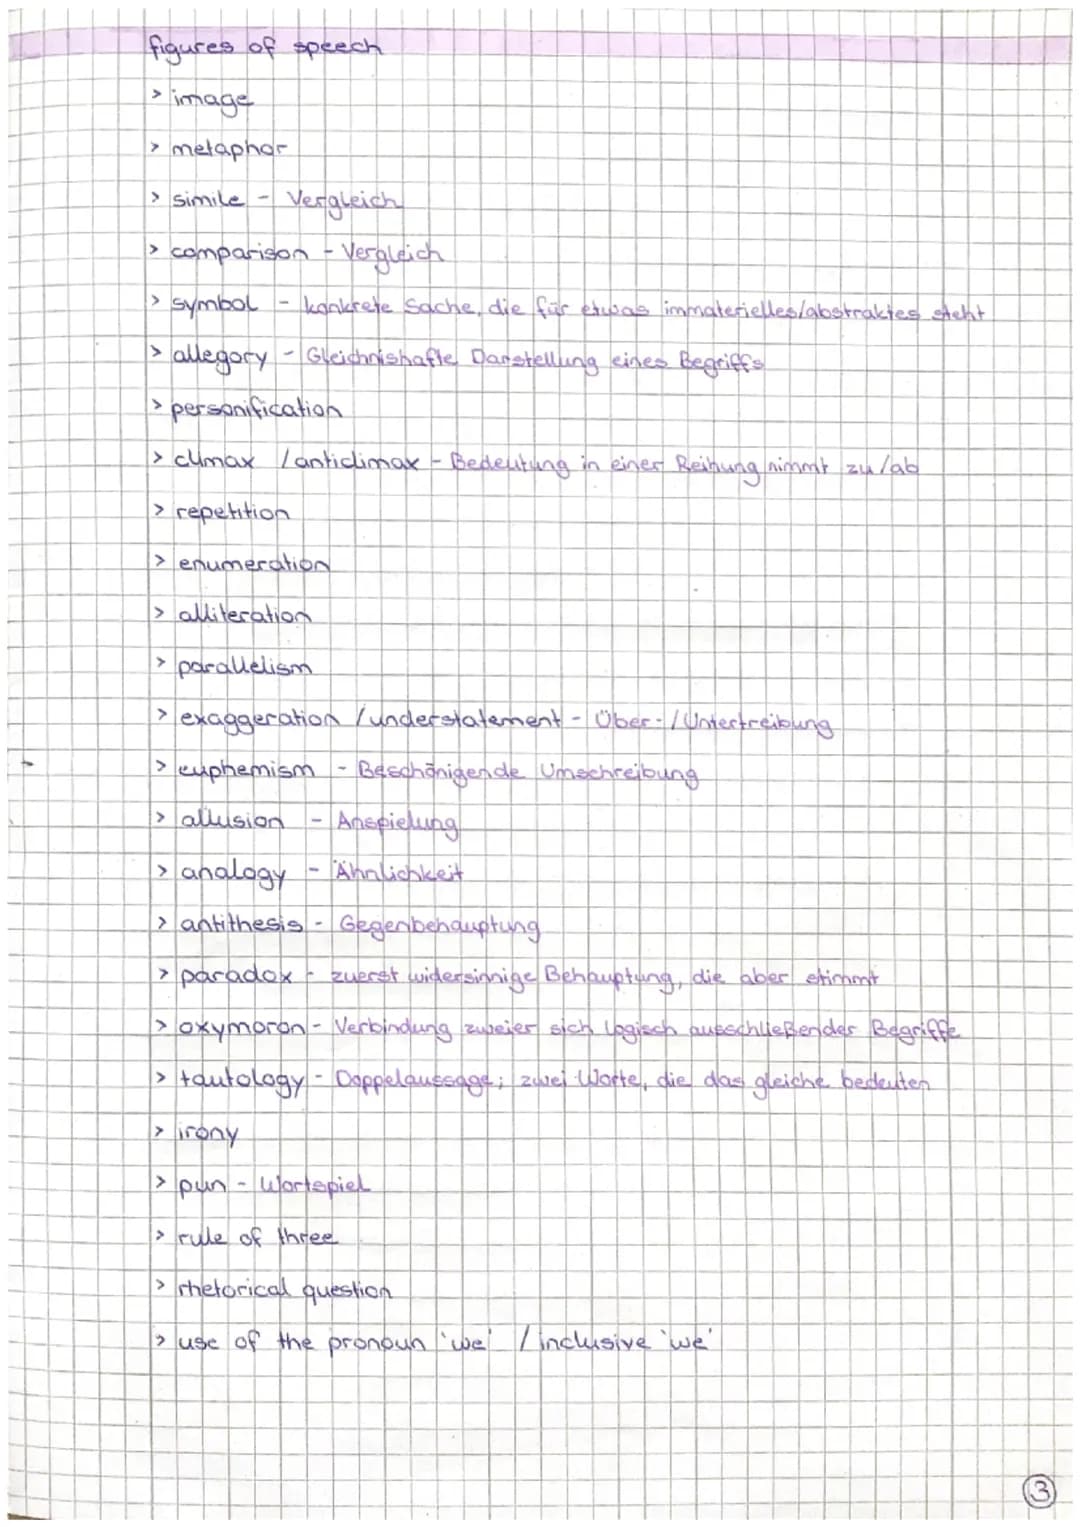 figures of speech
> image
> metaphor
> simile - Vergleich
> comparison - Vergleich
> symbol - konkrete Sache, die für etwas immaterielles/abstraktes steht
> allegory - Gleichnishafte Darstellung eines Begriffs
> personification
> climax / anticlimax - Bedeutung in einer Reihung nimmt zu/ab
> repetition
> enumeration
> alliteration
> parallelism
> exaggeration / understatement - Über-/Untertreibung
> euphemism - Beschönigende Umschreibung
> allusion - Anspielung
> analogy - Ähnlichkeit
> antithesis - Gegenbehauptung
> paradox - zuerst widersinnige Behauptung, die aber stimmt
> oxymoron - Verbindung zweier sich logisch ausschließender Begriffe
> tautology - Doppelaussage; zwei Worte, die das gleiche bedeuten
> irony
> pun - Wortspiel
> rule of three
> rhetorical question
> use of the pronoun 'we' / inclusive 'we'
3